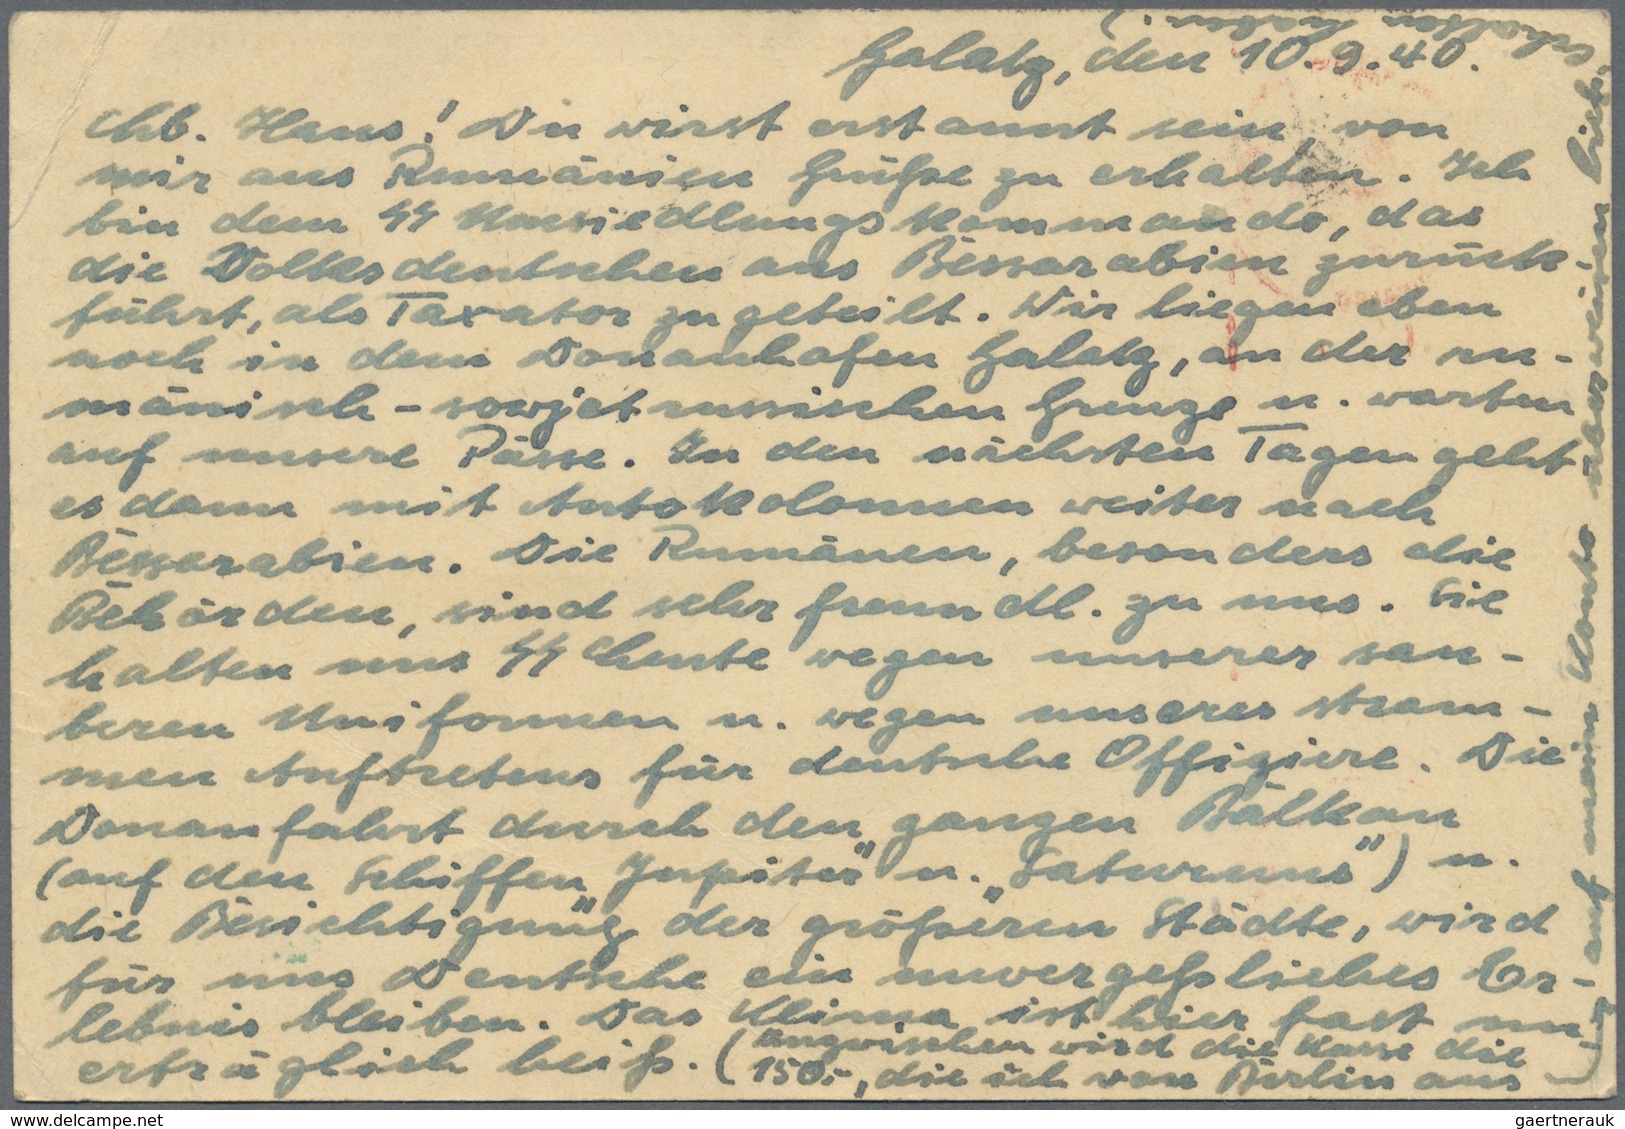 Galatz, den 10.9.40.
Lb. Hans! Du wirst erstaunt sein, von
mir aus Rumänien Grüße zu erhalten. Ich
bin dem SS Umsiedlungskommando, das
die Volksdeutschen aus Bessarabien zurück-
führt, als Taxator zugeteilt. Wir liegen eben
noch in dem Donauhafen Galatz, an der ru-
mänisch-sowjetrussischen Grenze u. warten
auf unsere Pässe. In den nächsten Tagen geht
es dann mit Autokolonnen weiter nach
Bessarabien. Die Rumänen, besonders die
Behörden, sind sehr freundl. zu uns. Sie
halten uns SS Leute wegen unserer sau-
beren Uniformen u. wegen unseres stram-
men Auftretens für deutsche Offiziere. Die
Donaufahrt durch den ganzen Balkan
(auf den Schiffen „Jupiter" u. „Saturnus") u.
die Besichtigung der größeren Städte, wird
für uns Deutsche ein unvergeßliches Er-
lebnis bleiben. Das Klima ist hier fast un-
erträglich heiß. (Inzwischen wird die Kasse die
150.-, die ich von Berlin aus
auf mein Konto überweisen ließ,
erhalten haben.)
gaertnerauk